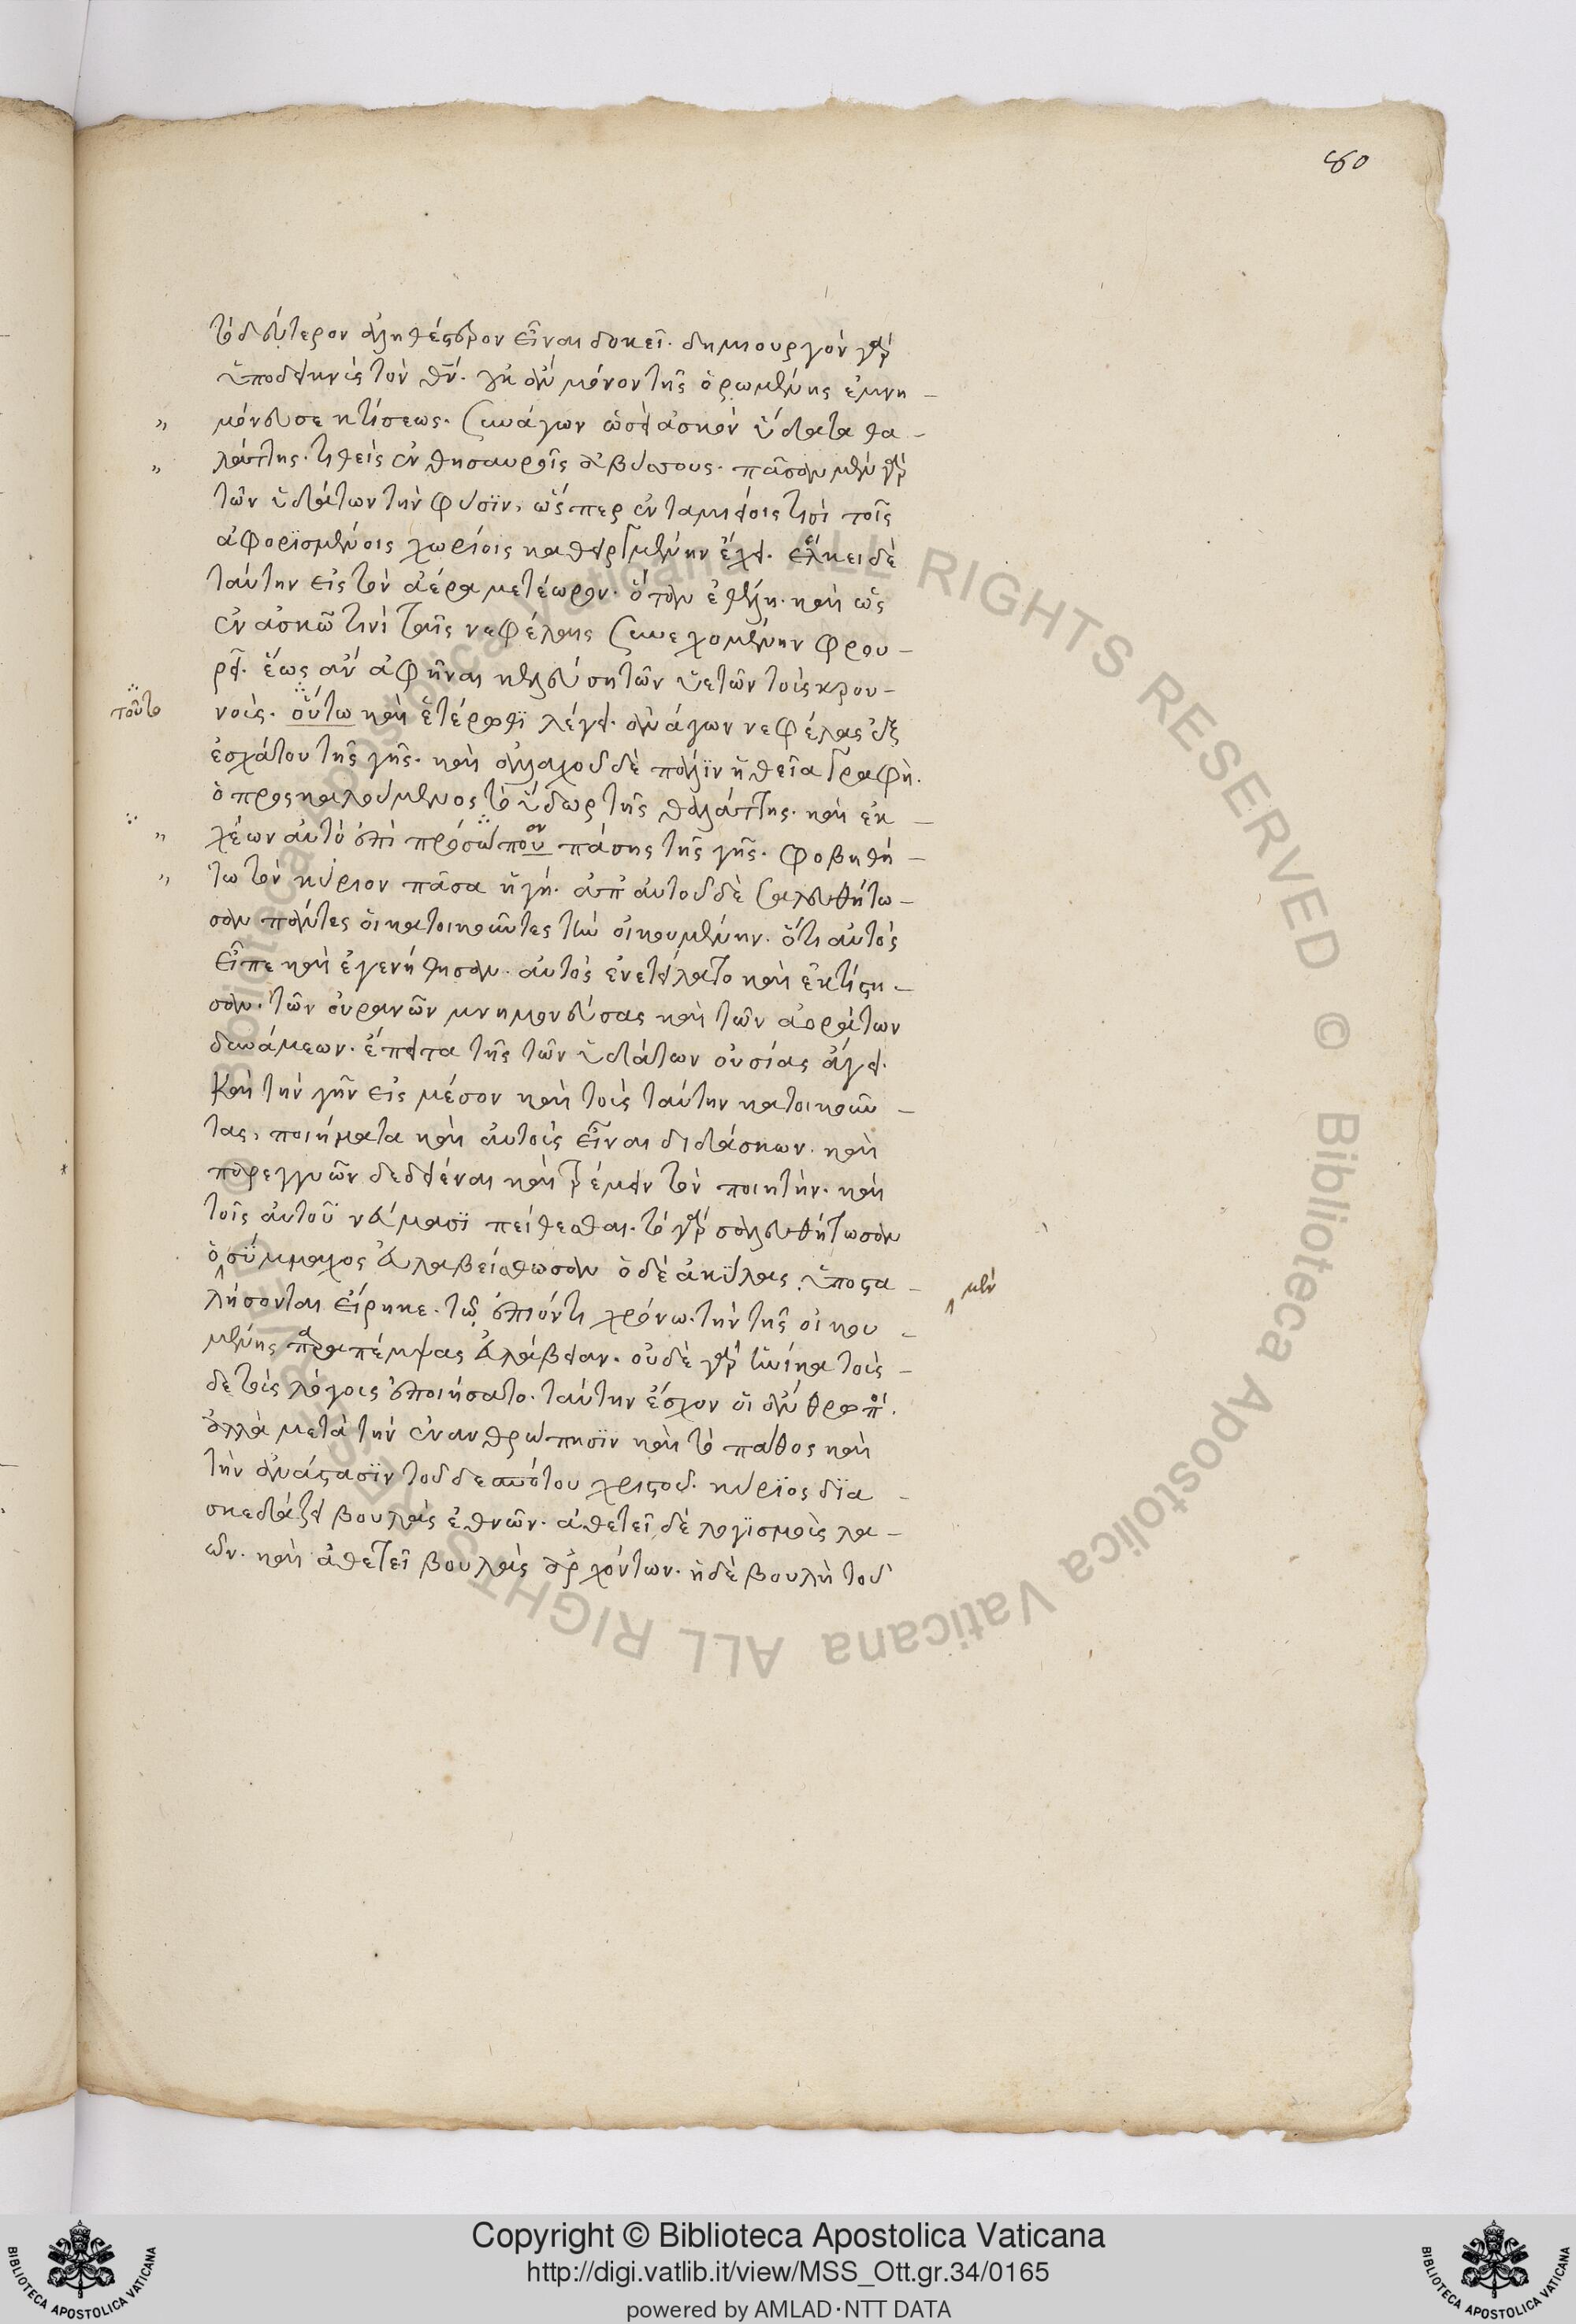 80
τὸ δεύτερον ἀληθέστερον εἶναι δοκεῖ. δημιουργὸν γὰρ
ὑποδεικνὺς τὸν θν̄. οὐκ ἂν μόνον τῆς ὁρωμένης ἐμνη-
" μόνευσε κτίσεως. Συνάγων ὡσεὶ ἀσκὸν ὕδατα θα-
" λάττης. τιθεὶς ἐν θησαυροῖς ἀβύσσους. πᾶσαν μὲν γὰρ
τῶν ὑδάτων τὴν φύσϊν, ὥσπερ ἐν ταμιείοις τισὶ τοῖς
ἀφορϊσμένοις χωρίοις καθειργμένην ἔχει. ἕλκει δὲ
ταύτην εἰς τὸν ἀέρα μετέωρον. ὅταν ἐθέλῃ. καὶ ὡς
ἐν ἀσκῶ τινὶ ταῖς νεφέλαις συνεχομένην φρου-
ρεῖ. ἕως ἂν ἀφῆναι κελεύσῃ τῶν ὑετῶν τοὺς κρου-
τοῦτο νούς. οὕτω καὶ ἑτέρωθϊ λέγει. ἀνάγων νεφέλας ἐξ
ἐσχάτου τῆς γῆς. καὶ ἀλλαχοῦ δὲ πάλϊν ἡ θεῖα γραφὴ.
ὁ προσκαλούμενος τὸ ὕδωρ τῆς θαλάττης. καὶ ἐκ-
" χέων αὐτὸ ἐπὶ πρόσωπου ον πάσης τῆς γῆς. φοβηθή-
" τω τὸν κύριον πᾶσα ἡ γῆ. ἀπ' αὐτοῦ δὲ σαλευθήτω-
σαν πάντες οἱ κατοικοῦντες τὴν οἰκουμένην. ὅτι αὐτὸς
εἶπε καὶ ἐγενήθησαν. αὐτὸς ἐνετείλατο καὶ ἐκτίσθη-
σαν. τῶν οὐρανῶν μνημονεύσας καὶ τῶν ἀοράτων
δυνάμεων. ἔπειτα τῆς τῶν ὑδάτων οὐσίας ἄγει.
Καὶ τὴν γῆν εἰς μέσον καὶ τοὺς ταύτην κατοικοῦν-
τας, ποιήματα καὶ αὐτοὺς εἶναι διδάσκων. καὶ
παρεγγυῶν δεδιέναι καὶ τρέμειν τὸν ποιητὴν. καὶ
τοῖς αὐτοῦ νεύμασϊ πείθεσθαι. τὸ γὰρ σαλευθήτωσαν
ὁ σύμμαχος εὐλαβείσθωσαν ὁ δὲ ἀκύλας ὑποστα- μὲν
λήσονται εἴρηκε. τῶ ἐπιόντι χρόνω. τὴν τῆς οἰκου-
μένης παραπέμψας εὐλάβειαν. οὐδὲ γὰρ ἡνίκα τοὺς-
δε τοὺς λόγους ἐποιήσατο. ταύτην ἔσχον οἱ ἄνθρωποι.
ἀλλὰ μετὰ τὴν ἐνανθρώπησϊν καὶ τὸ πάθος καὶ
τὴν ἀνάστασϊν τοῦ δεσπότου χριστοῦ. κύρϊος δϊα-
σκεδάζει βουλὰς ἐθνῶν. ἀθετεῖ δὲ λογϊσμοὺς λα-
ῶν. καὶ ἀθετεῖ βουλὰς ἀρχόντων. ἡ δὲ βουλὴ τοῦ
Biblioteca Apostolica Vaticana ALL RIGHTS RESERVED © Biblioteca Apostolica Vaticana ALL RIGHTS RESERVED ©
Copyright © Biblioteca Apostolica Vaticana
http://digi.vatlib.it/view/MSS_Ott.gr.34/0165
powered by AMLAD·NTT DATA
BIBLIOTECA APOSTOLICA VATICANA
BIBLIOTECA APOSTOLICA VATICANA